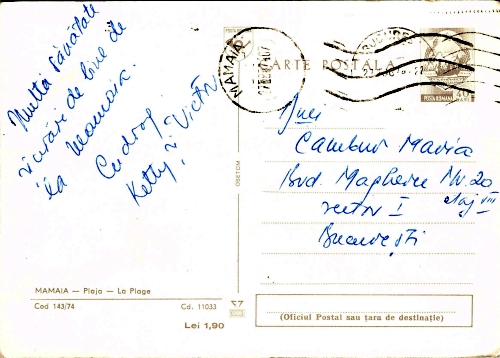 Multă sănătate
și urări de bine de
la Mamaia.
Cu drag
Ketty și Victor
MAMAIA — Plaja — La Plage
Cod 143/74 Cd. 11033
Lei 1,90
OSETCM
CARTE POSTALA
MAMAIA
POSTA ROMANA
Dnei
Cambur Maria
Bvd. Magheru Nr. 20
etaj VIII
sector I
București
(Oficiul Postal sau țara de destinație)